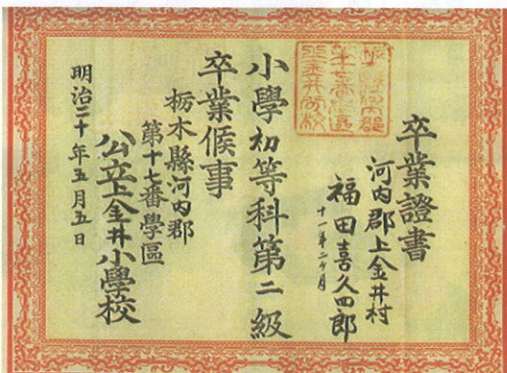 卒業證書
河内郡上金井村
福田喜久四郎
十一年二ヶ月
小學初等科第二級
卒業候事
栃木縣河内郡
第十七番學區
公立上金井小學校
明治二十年五月五日